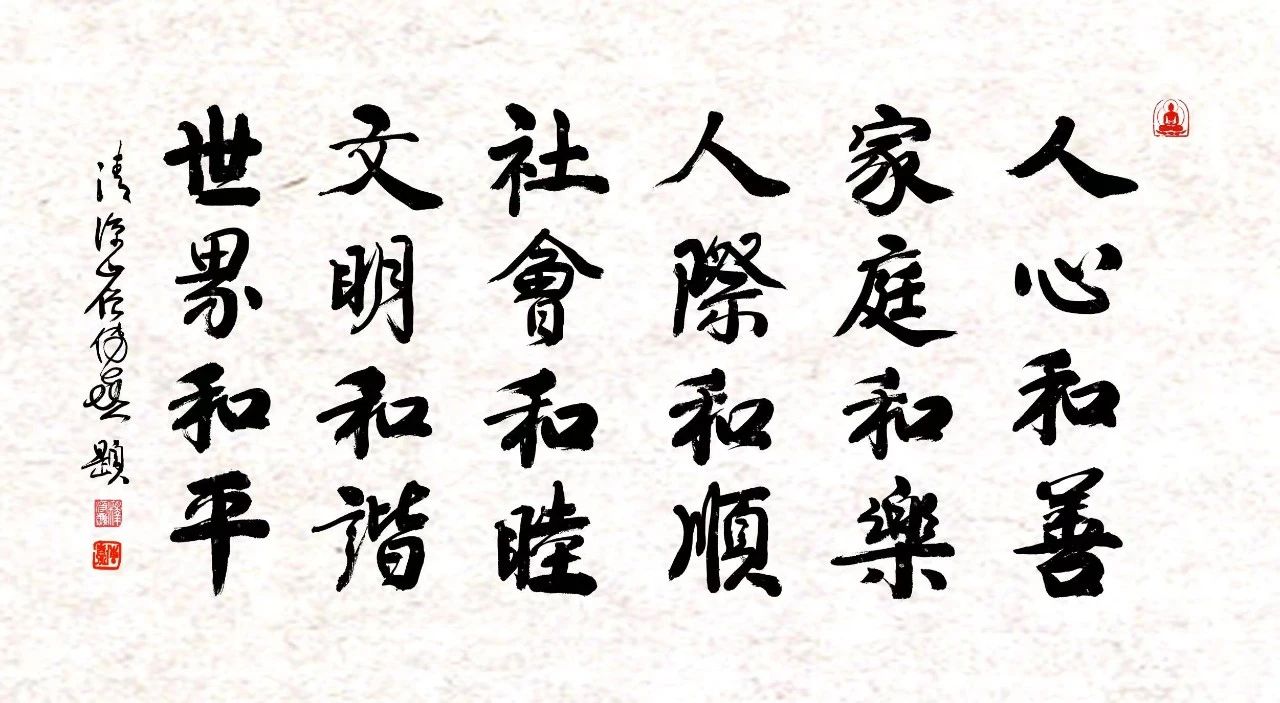 人心和善
家庭和樂
人際和順
社會和睦
文明和諧
世界和平
清涼山